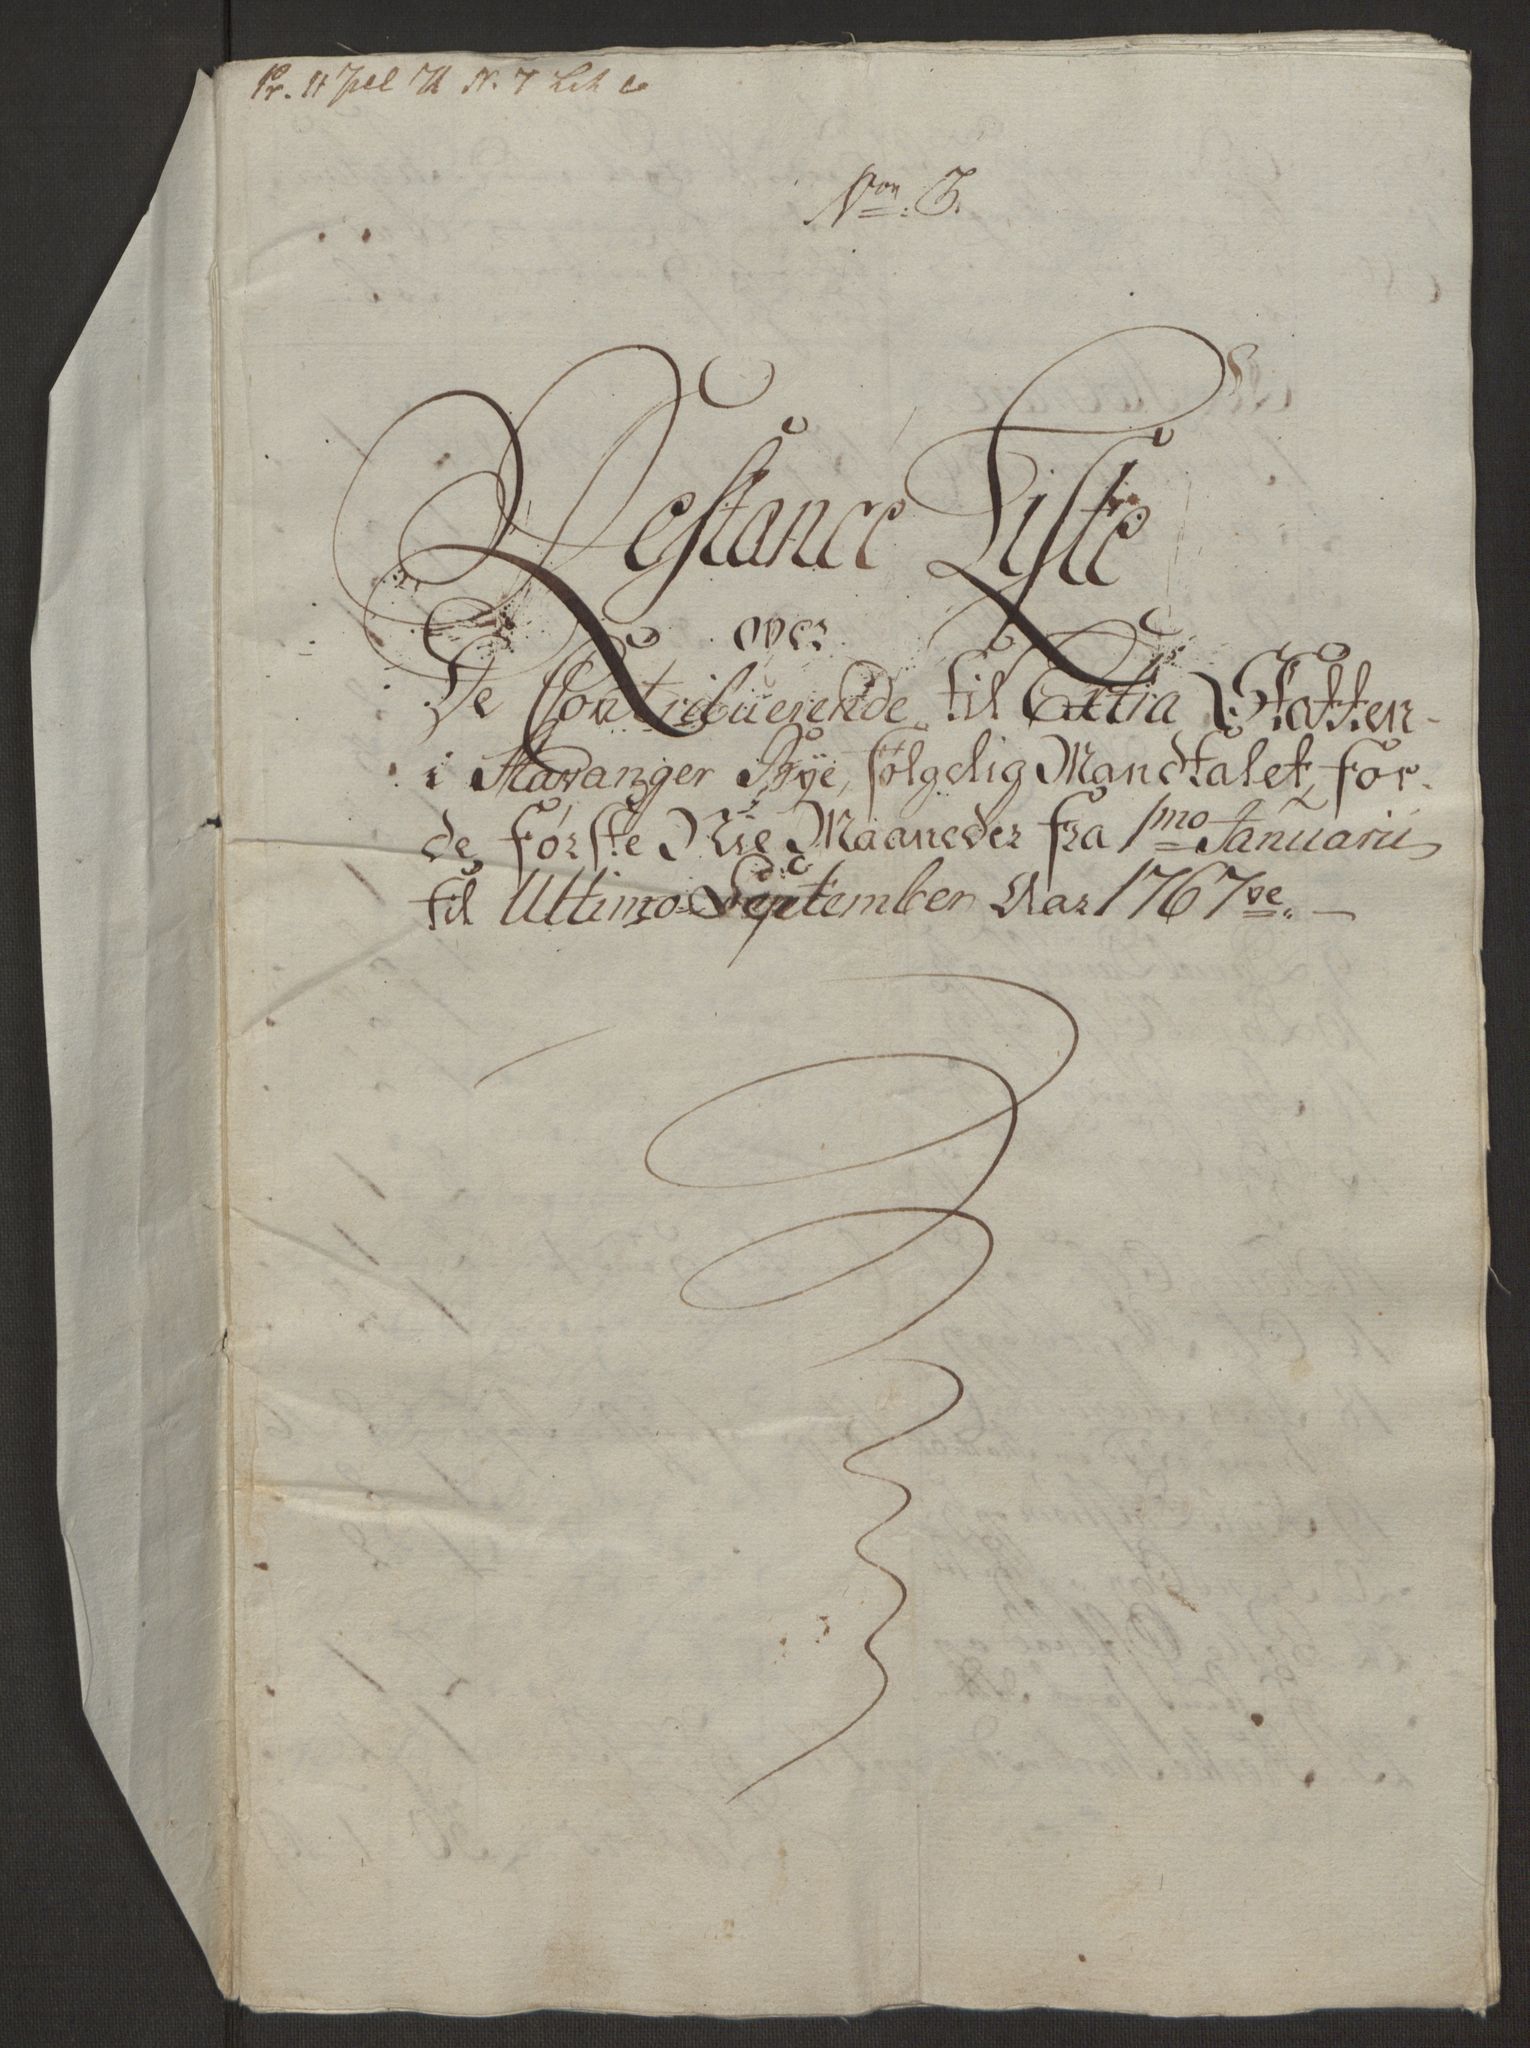 Non. 3.
Restance Liste
over
De Contribuerende til Extra Skatten
i Stavanger Bye, følgelig Mandtalet, for
de første Nie Maaneder fra 1mo Januarii
til Ultimo September Aar 1767ve.